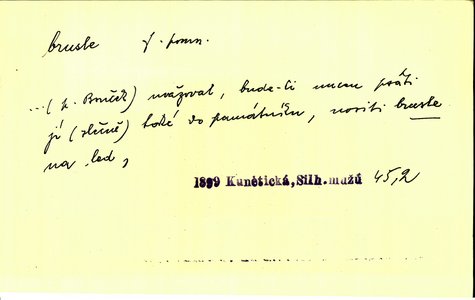 brusle f. pomn.
...(p. Brouček) uvažoval, bude-li muset psáti
jí (slečně) také do památníku, nositi brusle
na led,
1899 Kunětická, Silh. mužů 45,2